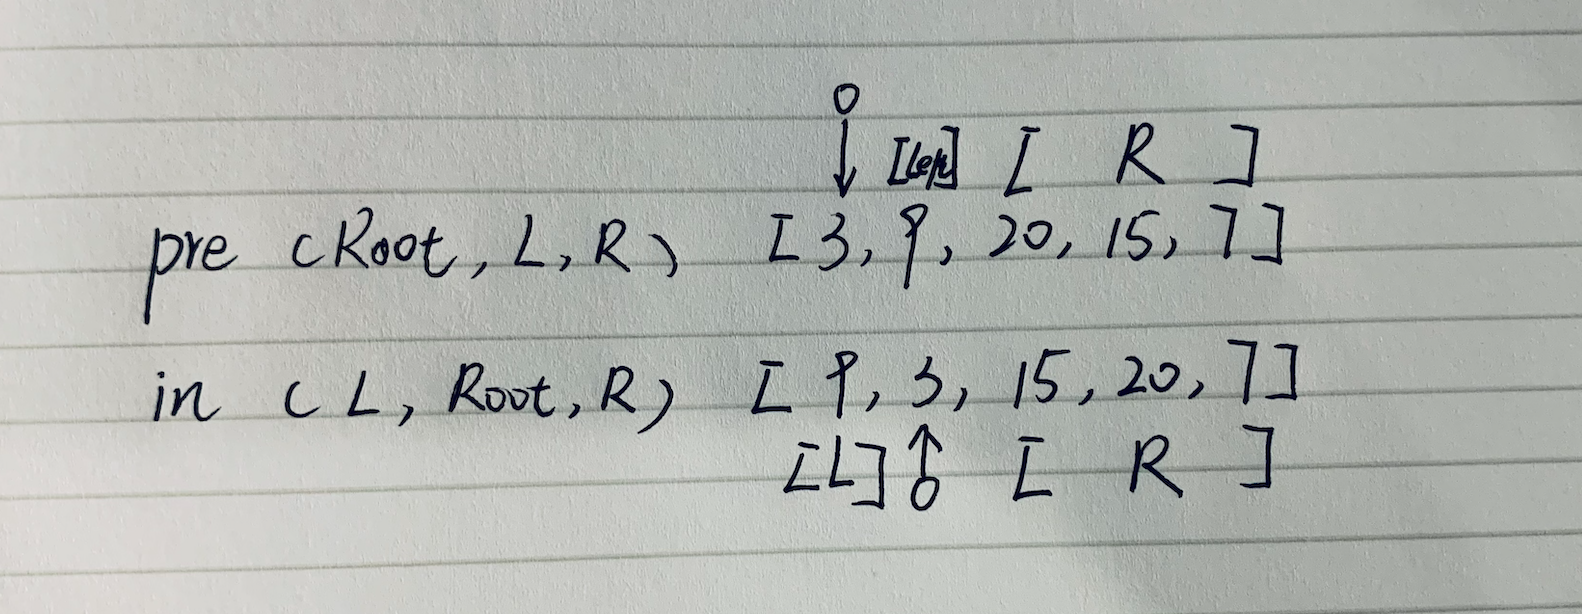 [Left] [ R ]
pre (Root, L, R) [3, 9, 20, 15, 7]
in (L, Root, R) [9, 3, 15, 20, 7]
[L] [ R ]